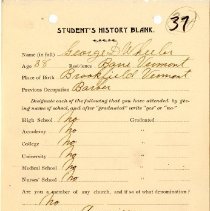 37
STUDENT'S HISTORY BLANK.
Name (in full) George D Wheeler
Age 38 Residence Barre Vermont
Place of Birth Brookfield Vermont
Previous Occupation Barber
Designate each of the following that you have attended by giving
name of school, and after "graduated" write "yes" or "no"
High School No Graduated
Academy No "
College No "
University No "
Medical School No "
Nurses' School No "
Are you a member of any church, and if so of what denomination?
No